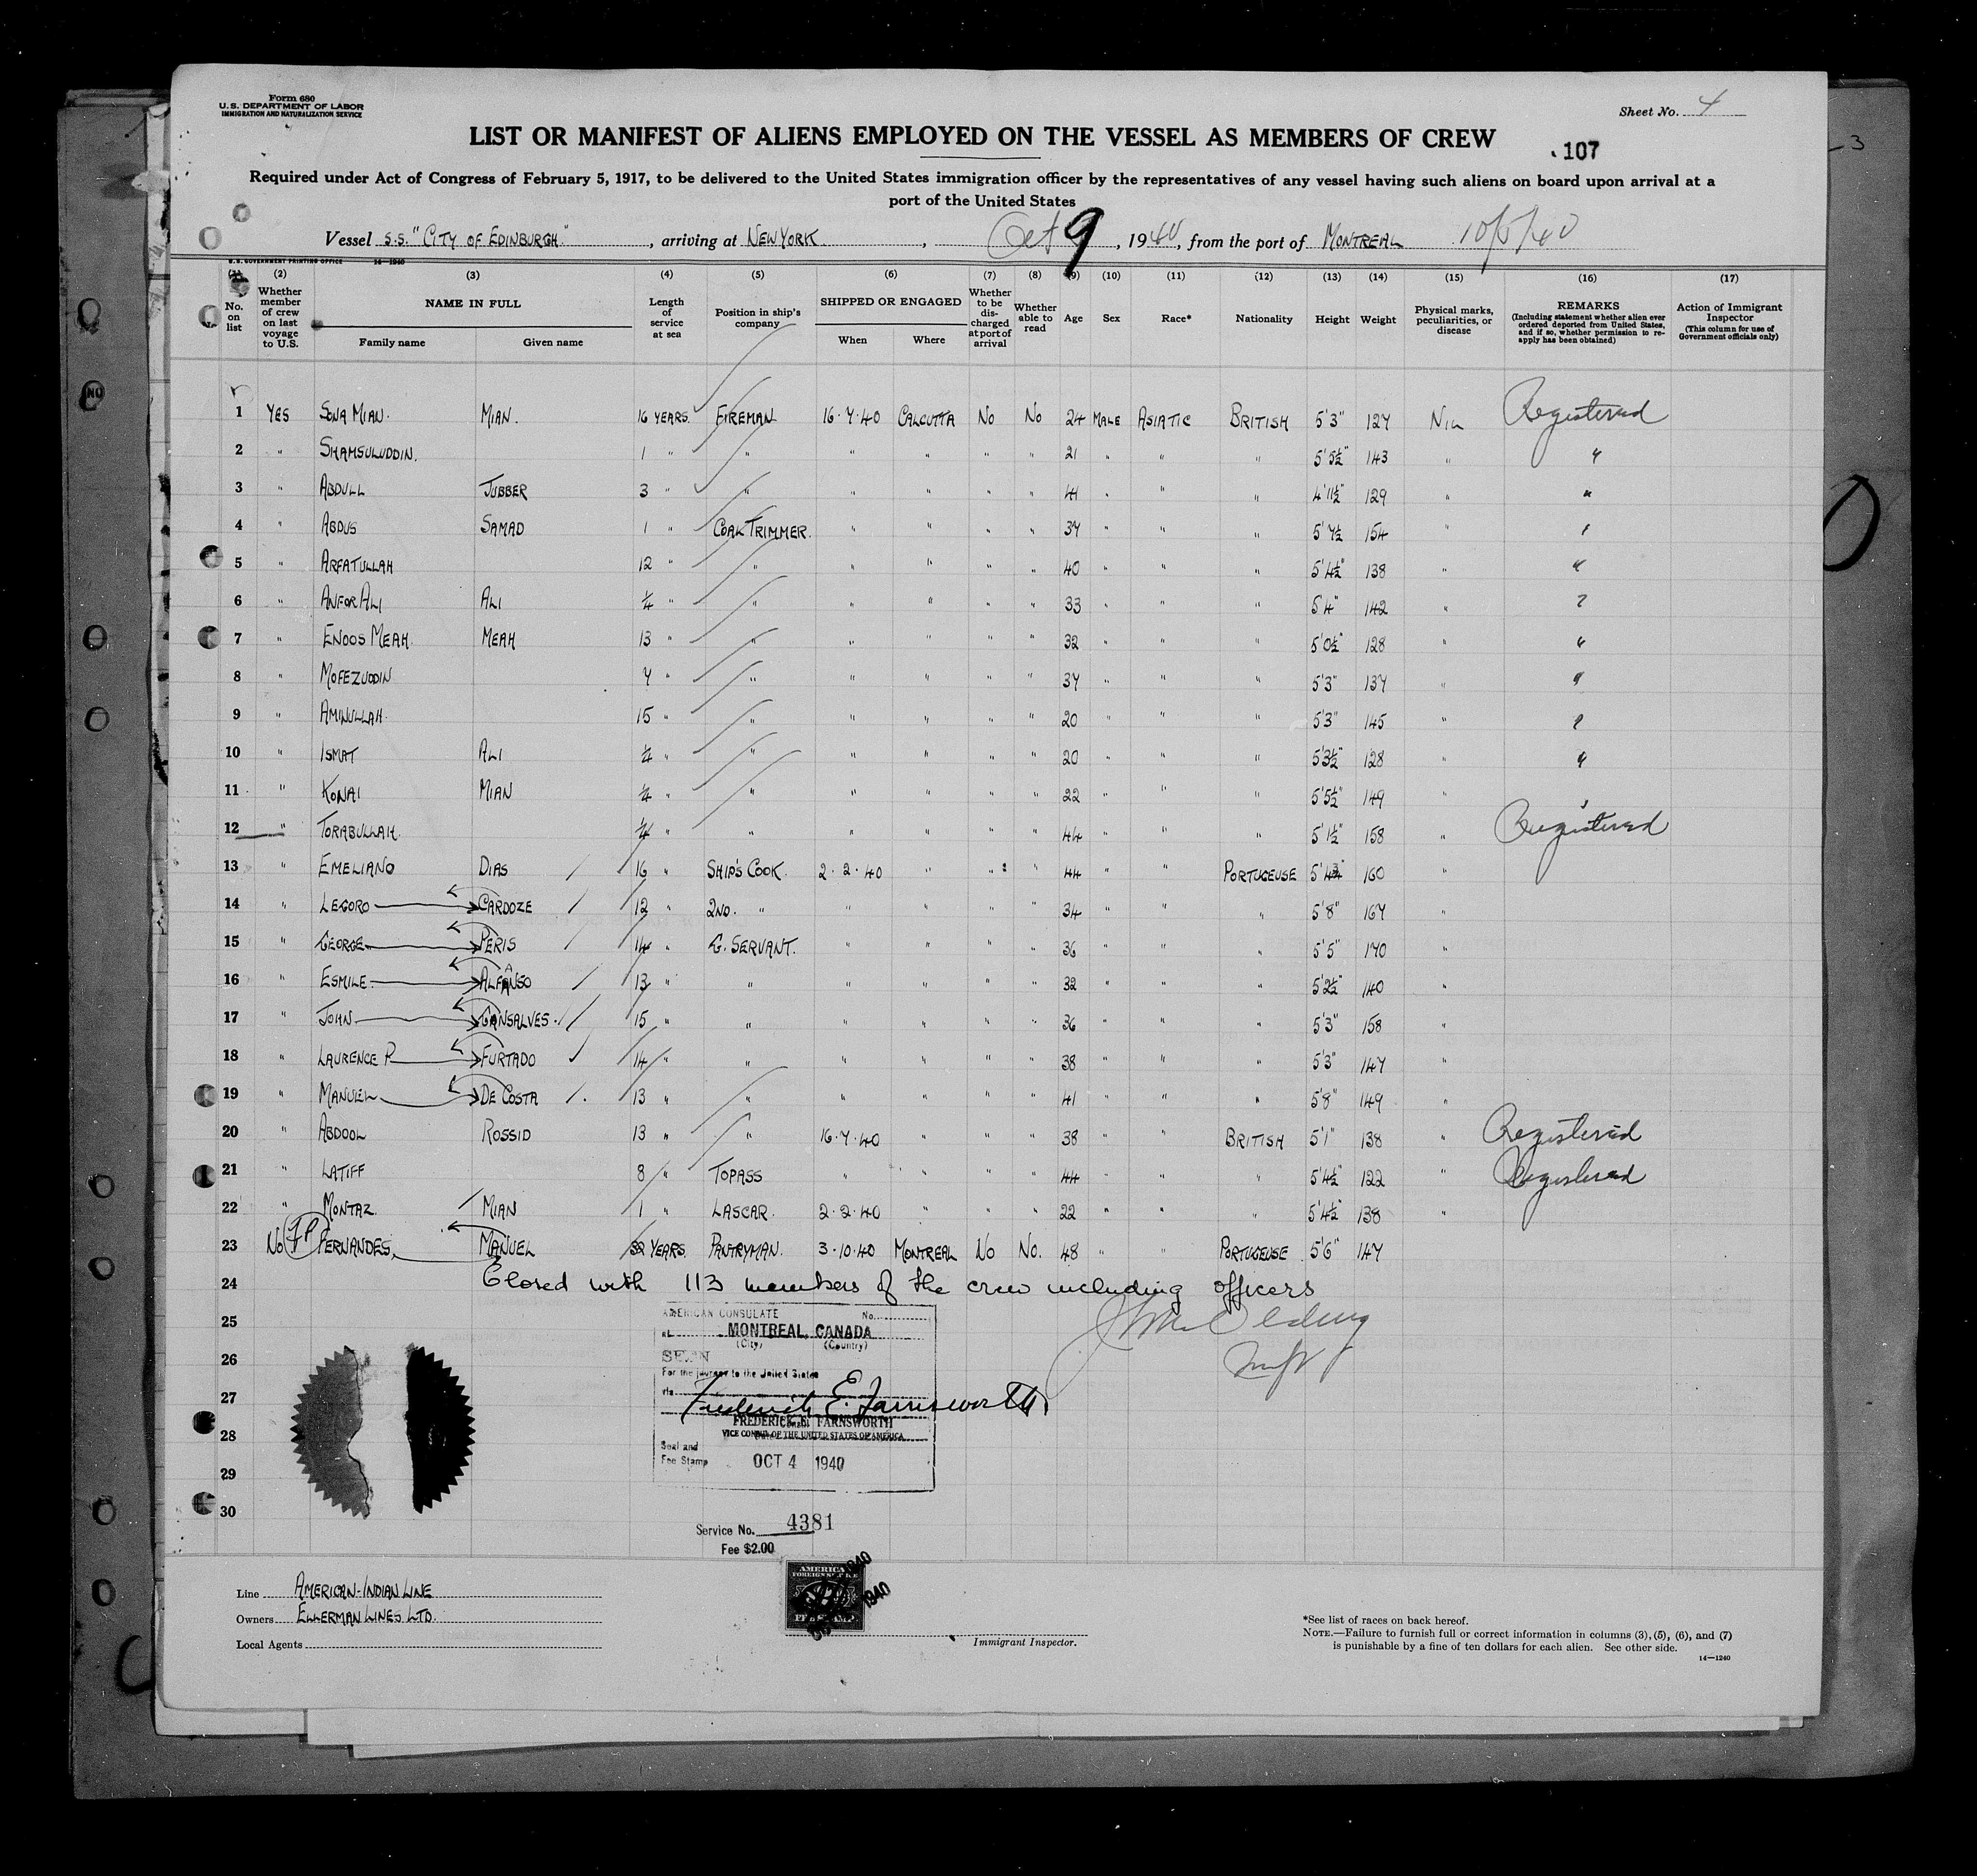 Form 680
U.S. DEPARTMENT OF LABOR
IMMIGRATION AND NATURALIZATION SERVICE
Sheet No. 4
LIST OR MANIFEST OF ALIENS EMPLOYED ON THE VESSEL AS MEMBERS OF CREW
107
Required under Act of Congress of February 5, 1917, to be delivered to the United States immigration officer by the representatives of any vessel having such aliens on board upon arrival at a
port of the United States
Vessel S.S. "CITY OF EDINBURGH", arriving at NEW YORK, Oct 9, 1940, from the port of MONTREAL 10/5/40
U.S. GOVERNMENT PRINTING OFFICE 14—1240
(1) (2) (3) (4) (5) (6) (7) (8) (9) (10) (11) (12) (13) (14) (15) (16) (17)
No. on list | Whether member of crew on last voyage to U.S. | NAME IN FULL Family name Given name | Length of service at sea | Position in ship's company | SHIPPED OR ENGAGED When Where | Whether to be discharged at port of arrival | Whether able to read | Age | Sex | Race* | Nationality | Height | Weight | Physical marks, peculiarities, or disease | REMARKS (Including statement whether alien ever ordered deported from United States, and if so, whether permission to reapply has been obtained) | Action of Immigrant Inspector (This column for use of Government officials only)
1 YES SONA MIAN. MIAN. 16 YEARS. FIREMAN 16.7.40 CALCUTTA NO NO 24 MALE ASIATIC BRITISH 5'3" 127 NIL Registered
2 " SHAMSULUDDIN. 1 " " " " " " 21 " " " 5'5½" 143 " "
3 " ABDULL JUBBER 3 " " " " " " 41 " " " 4'11½" 129 " "
4 " ABDUS SAMAD 1 " COAL TRIMMER. " " " " 37 " " " 5'7½ 154 " "
5 " ARFATULLAH 12 " " " " " " 40 " " " 5'4½" 138 " "
6 " ANFOR ALI ALI ¼ " " " " " " 33 " " " 5'4" 142 " "
7 " ENOOS MEAH. MEAH 13 " " " " " " 32 " " " 5'0½" 128 " "
8 " MOFEZUDDIN 7 " " " " " " 37 " " " 5'3" 137 " "
9 " AMINULLAH. 15 " " " " " " 20 " " " 5'3" 145 " "
10 " ISMAT ALI ¼ " " " " " " 20 " " " 5'3½" 128 " "
11 " KONAI MIAN ¼ " " " " " " 22 " " " 5'5½" 149 " "
12 " TORABULLAH. ¼ " " " " " " 44 " " " 5'1½" 158 " Registered
13 " EMELIANO DIAS 16 " SHIP'S COOK. 2.2.40 " " " 44 " " PORTUGEUSE 5'4¾" 160 "
14 " LEGORO CARDOZE 12 " 2ND. " " " " " 34 " " " 5'8" 167 "
15 " GEORGE PERIS 14 " G. SERVANT. " " " " 36 " " " 5'5" 170 "
16 " ESMILE ALFANSO 13 " " " " " " 32 " " " 5'2½" 140 "
17 " JOHN GANSALVES. 15 " " " " " " 36 " " " 5'3" 158 "
18 " LAURENCE P. FURTADO 14 " " " " " " 38 " " " 5'3" 147 "
19 " MANUEL DE COSTA 13 " " " " " " 41 " " " 5'8" 149 "
20 " ABDOOL ROSSID 13 " " 16.7.40 " " " 38 " " BRITISH 5'1" 138 " Registered
21 " LATIFF 8 " TOPASS " " " " 44 " " " 5'4½" 122 " Registered
22 " MONTAZ. MIAN 1 " LASCAR. 2.2.40 " " " 22 " " " 5'4½" 138 "
23 NO FERNANDES, MANUEL 32 YEARS. PANTRYMAN. 3.10.40 MONTREAL NO NO. 48 " " PORTUGEUSE 5'6" 147
24 Closed with 113 members of the crew including officers
25
26
27
28
29
30
AMERICAN CONSULATE No.
at MONTREAL, CANADA
(City) (Country)
SEEN
For the journey to the United States
via
Frederick E. Farnsworth
FREDERICK E. FARNSWORTH
VICE CONSUL OF THE UNITED STATES OF AMERICA
Seal and
Fee Stamp OCT 4 1940
Service No. 4381
Fee $2.00
AMERICAN
FOREIGN SERVICE
FEE STAMP
1940
1940
Line AMERICAN-INDIAN LINE
Owners ELLERMAN LINES LTD.
Local Agents
Immigrant Inspector.
*See list of races on back hereof.
NOTE.—Failure to furnish full or correct information in columns (3), (5), (6), and (7)
is punishable by a fine of ten dollars for each alien. See other side.
14—1240